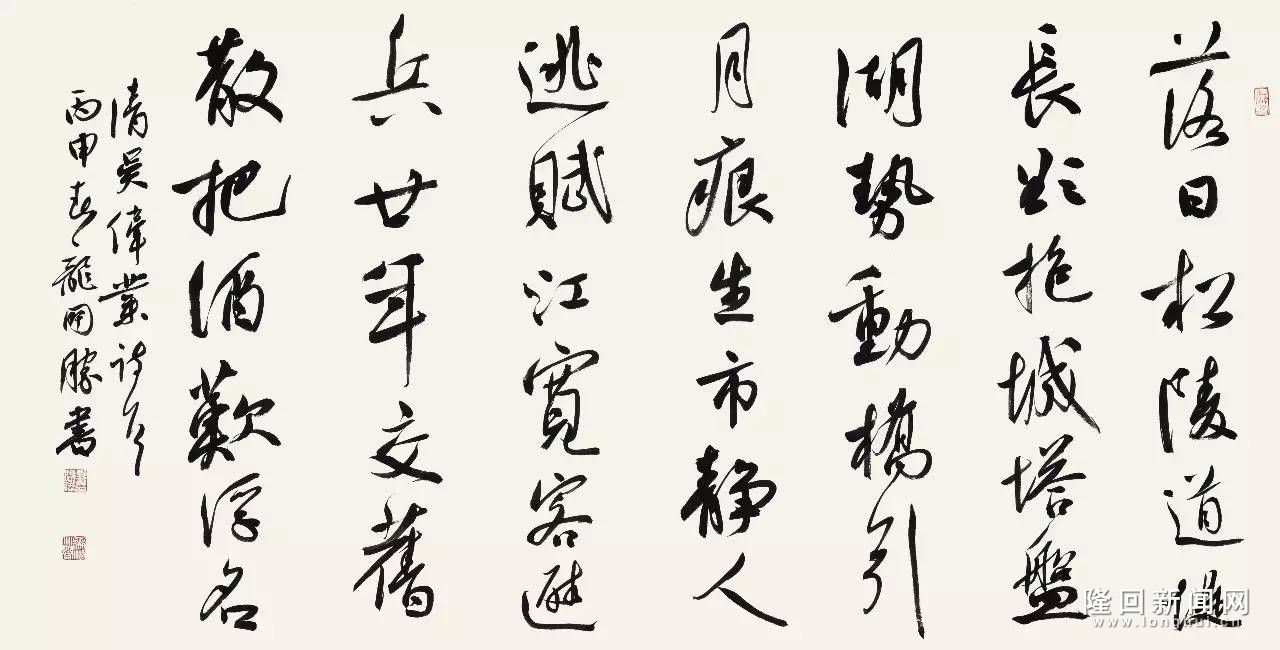 落日松陵道堤
長欲抱城塔盤
湖勢動橋引
月痕生市静人
逃賦江寬客避
兵廿年交舊
散把酒歎浮名
清吳偉業詩
丙申春龍開勝書
隆回新闻网
www.longhui.cn